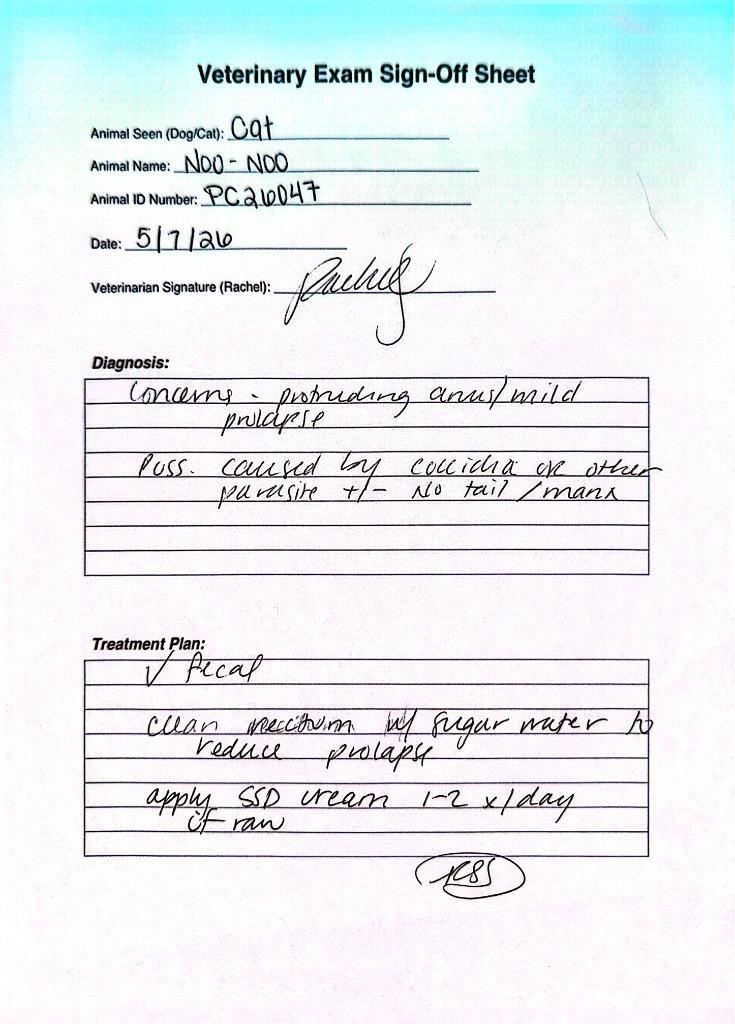 Veterinary Exam Sign-Off Sheet
Animal Seen (Dog/Cat): Cat
Animal Name: NOO-NOO
Animal ID Number: PC26047
Date: 5/7/26
Veterinarian Signature (Rachel): Rachel
Diagnosis:
Concerns - protruding anus/mild
prolapse
Poss. caused by coccidia or other
parasite +/- No tail/manx
Treatment Plan:
√ fecal
clean rectum w/ sugar water to
reduce prolapse
apply SSD cream 1-2 x/day
if raw